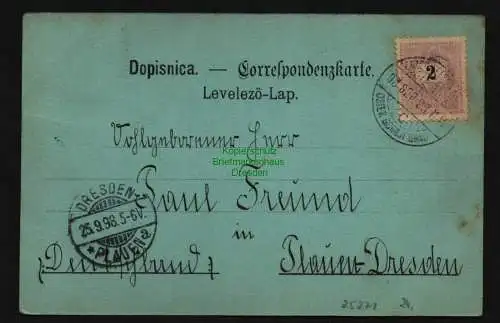 Dopisnica. — Correspondenzkarte.
Levelezö-Lap.
2
Wohlgeborener Herr
Kopierschutz
Briefmarkenhaus
Dresden
Paul Freund
DRESDEN-
25.9.98.5-6V.
* PLAUEN a
in
(Deutschland) Plauen-Dresden
25271 2.